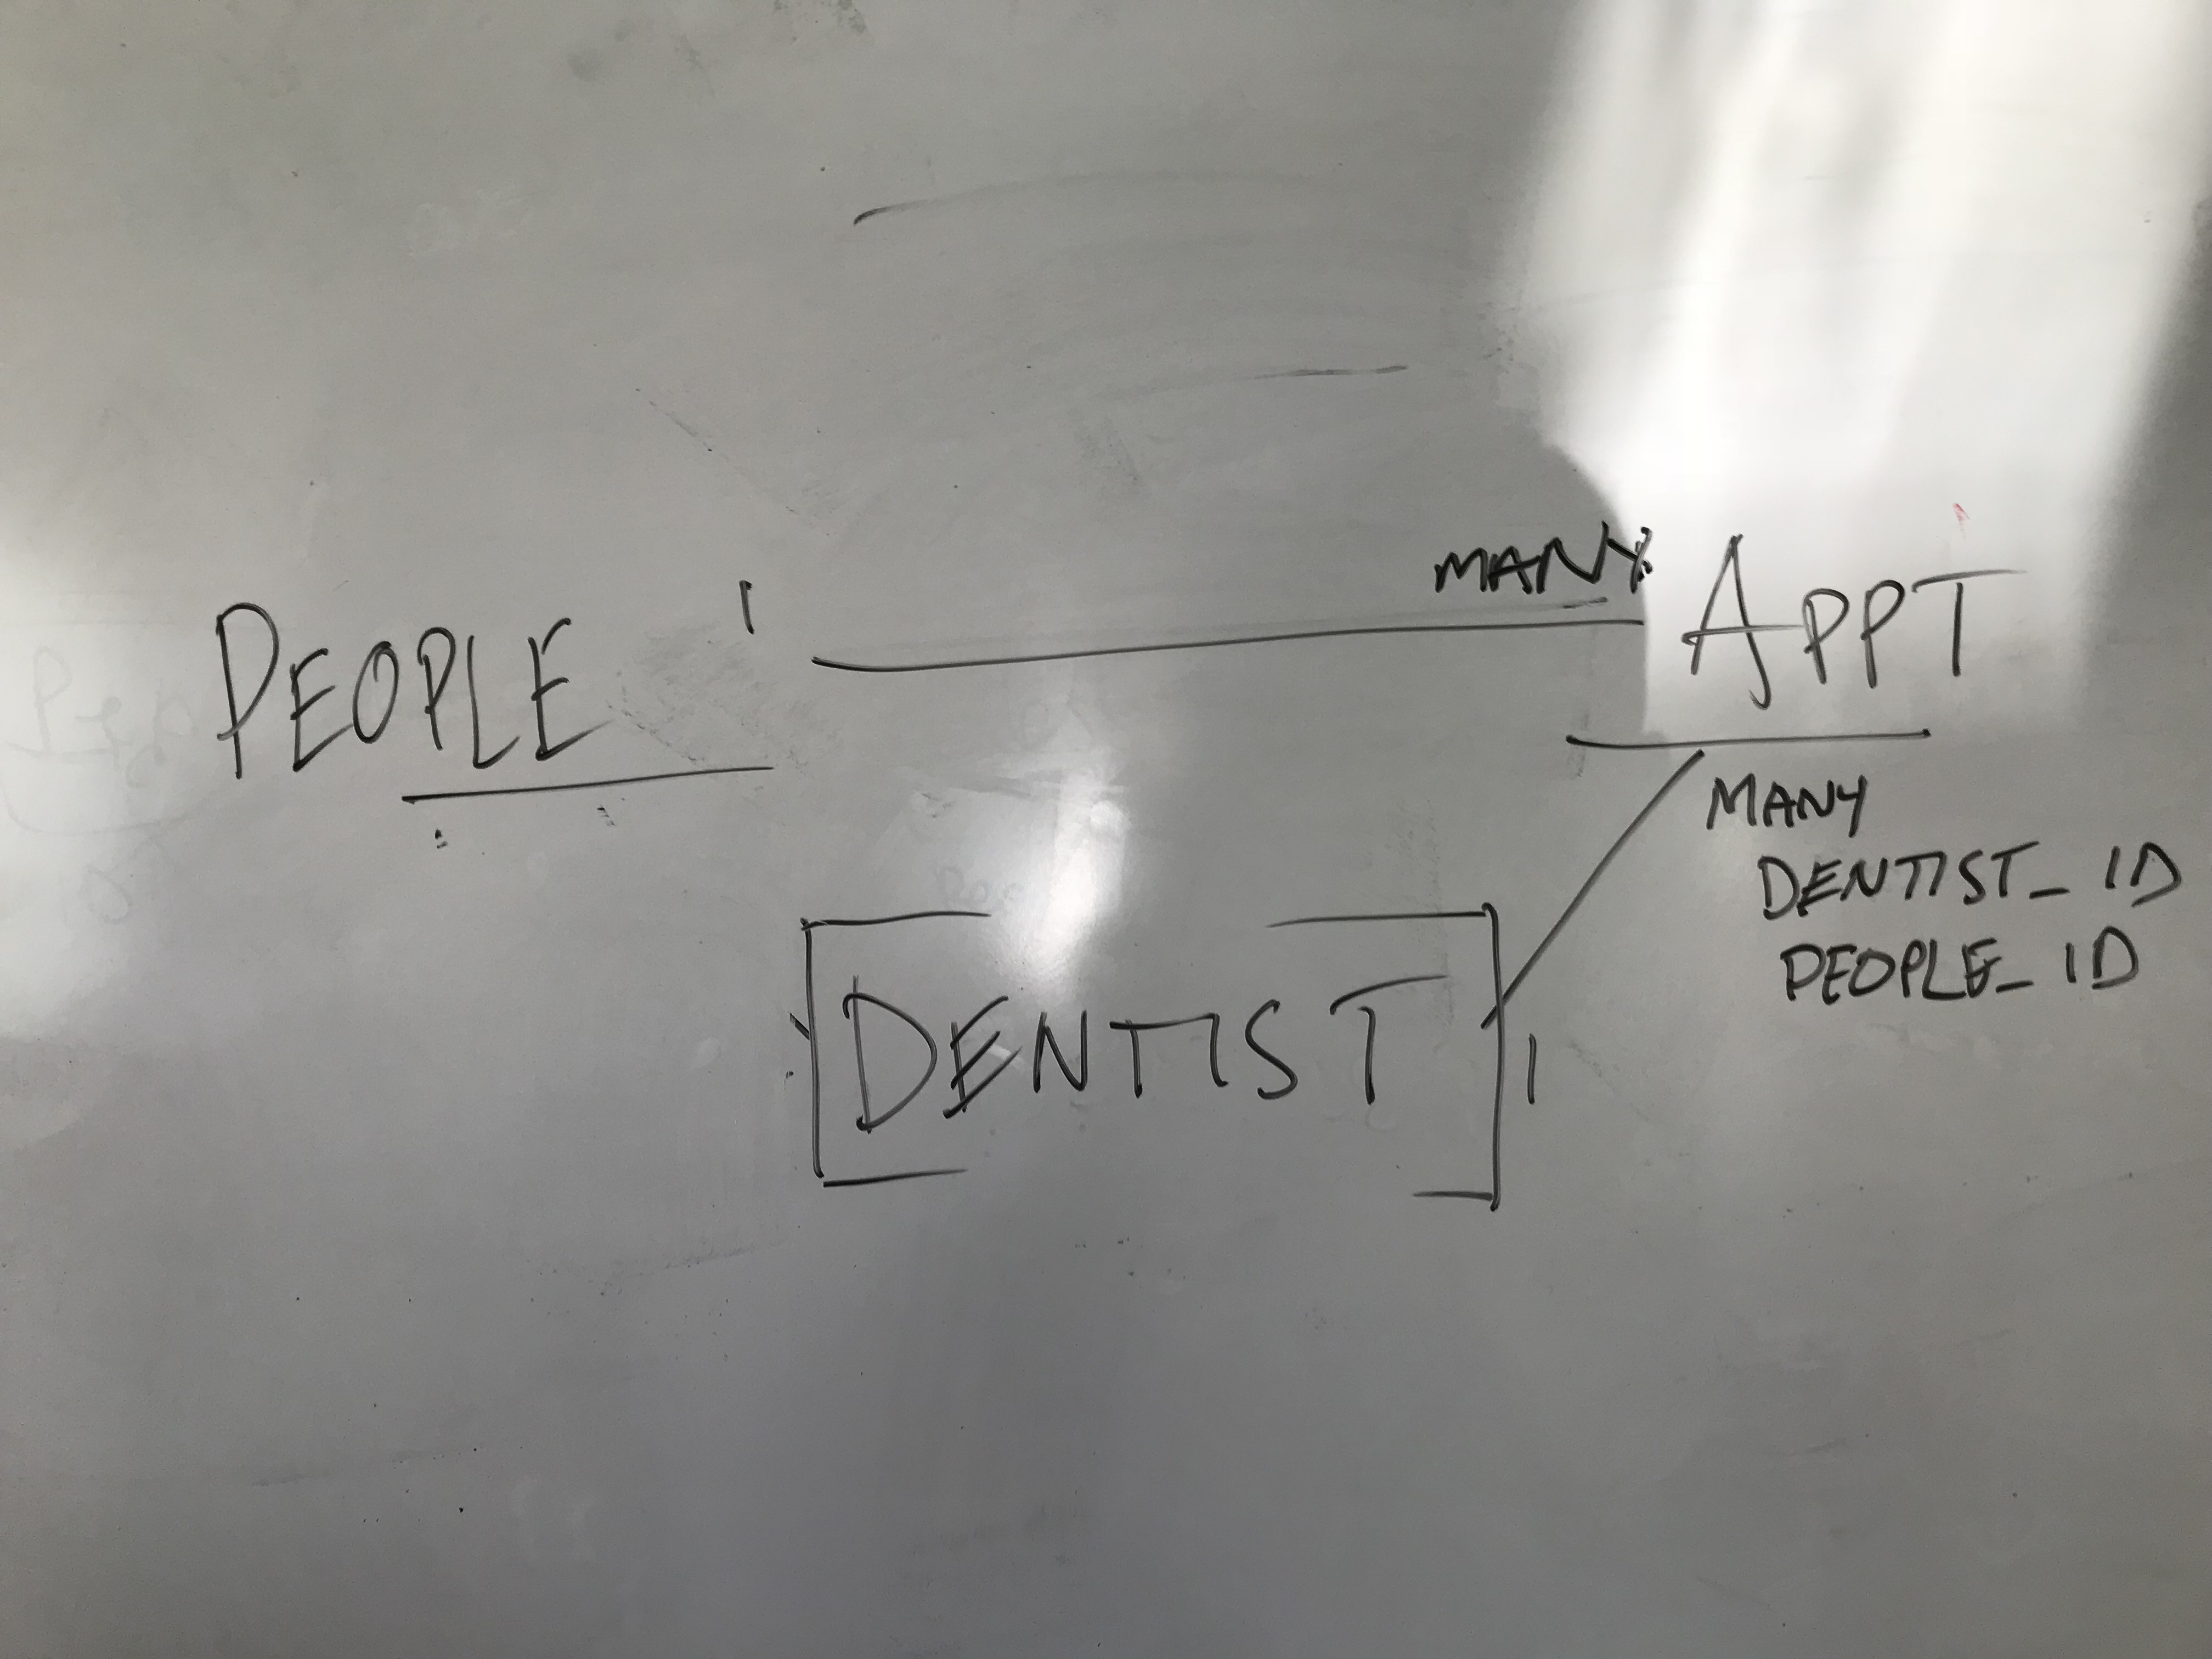 MANY
PEOPLE 1
APPT
MANY
DENTIST_ID
PEOPLE_ID
DENTIST 1